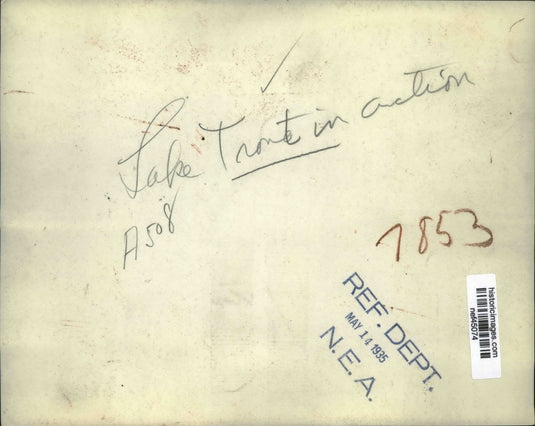 Lake Trout in action
A508
1853
REF. DEPT.
MAY 14 1935
N.E.A.
historicimages.com
nef45074